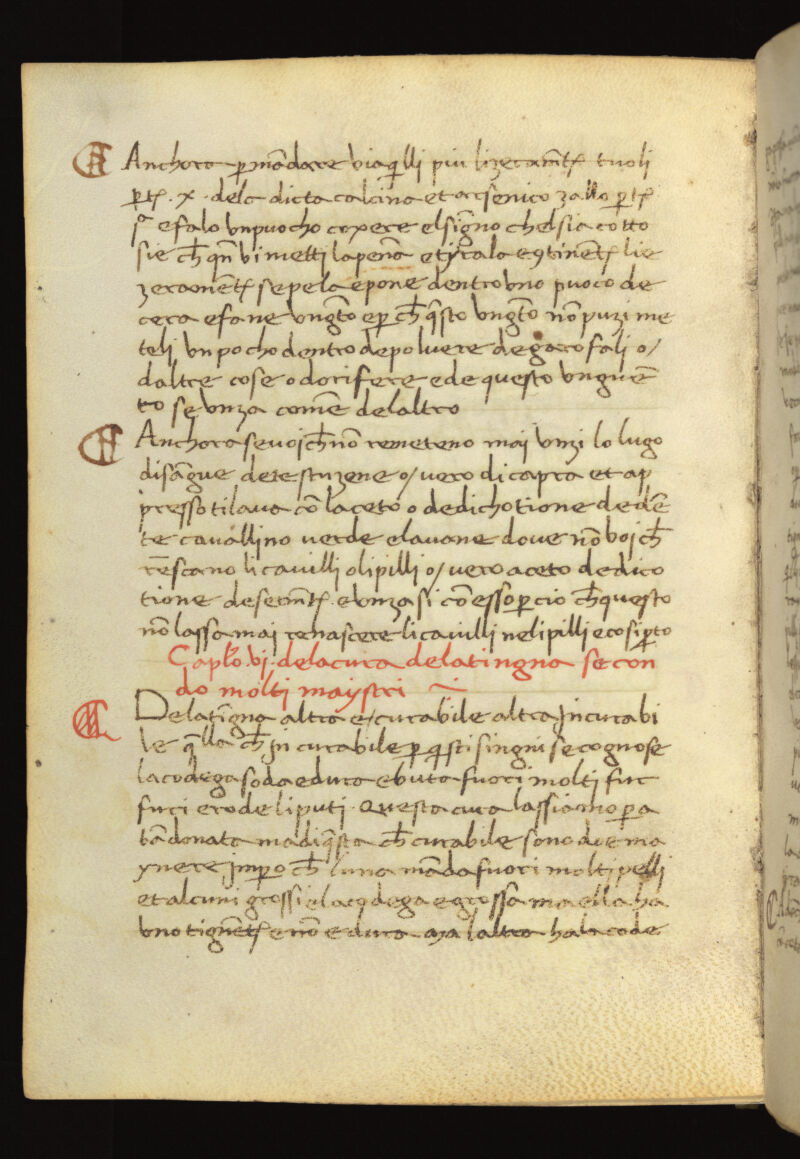 Anchora p mādare via q̄lli piu lizeramēt tuoli
pt̄ · x · dela dicta calcina et arsenico zallo pt̄
j̄ e falo vn puocho coxere el signo chel sia cotto
sie ch̄ qn̄ vi metti la pena e tyrala
zeramēt se pela e pone dentro uno puoco de
cera e fane vngt̄o e p ch̄ q̄sto vngt̄o nō puzi me
teli vn pocho dentro de poluere de garofali o/
daltre cose odorifere e de questo vnguē
to se vnza come del altro
Anchora se voi ch̄ nō remeteno mai vnzi lo lugo
di sāgue de vero di capra et ap
presso ti laua cō laceto o de dichotione de dē
te cauallino verde e lauane doue nō voi ch̄
rēscano li cauilli o li pilli o/ vero aceto de dico
tione de e vnzasi cō esso p cio ch̄ questo
nō lassa mai renascere li cauilli ne li pilli e cosi
Caplo · vj · dela cura dela tingna secon
do molti maystri
Dela tigna altra e/ curabile altra jncurabi
le q̄lla ch̄ jncurabile p q̄sti singni se cognose
la codega soda e dura e buta fuori molti fur
furi e rode li puti · Questa cura lassiamo p a
bādonata ma di q̄sta ch̄ curabile sono due ma
ynere jmpo ch̄ luna māda fuori molti pelli
et alcuni grossi e la codega e grossa ma ella ha
uno e nō e dura ma laltra ha la code